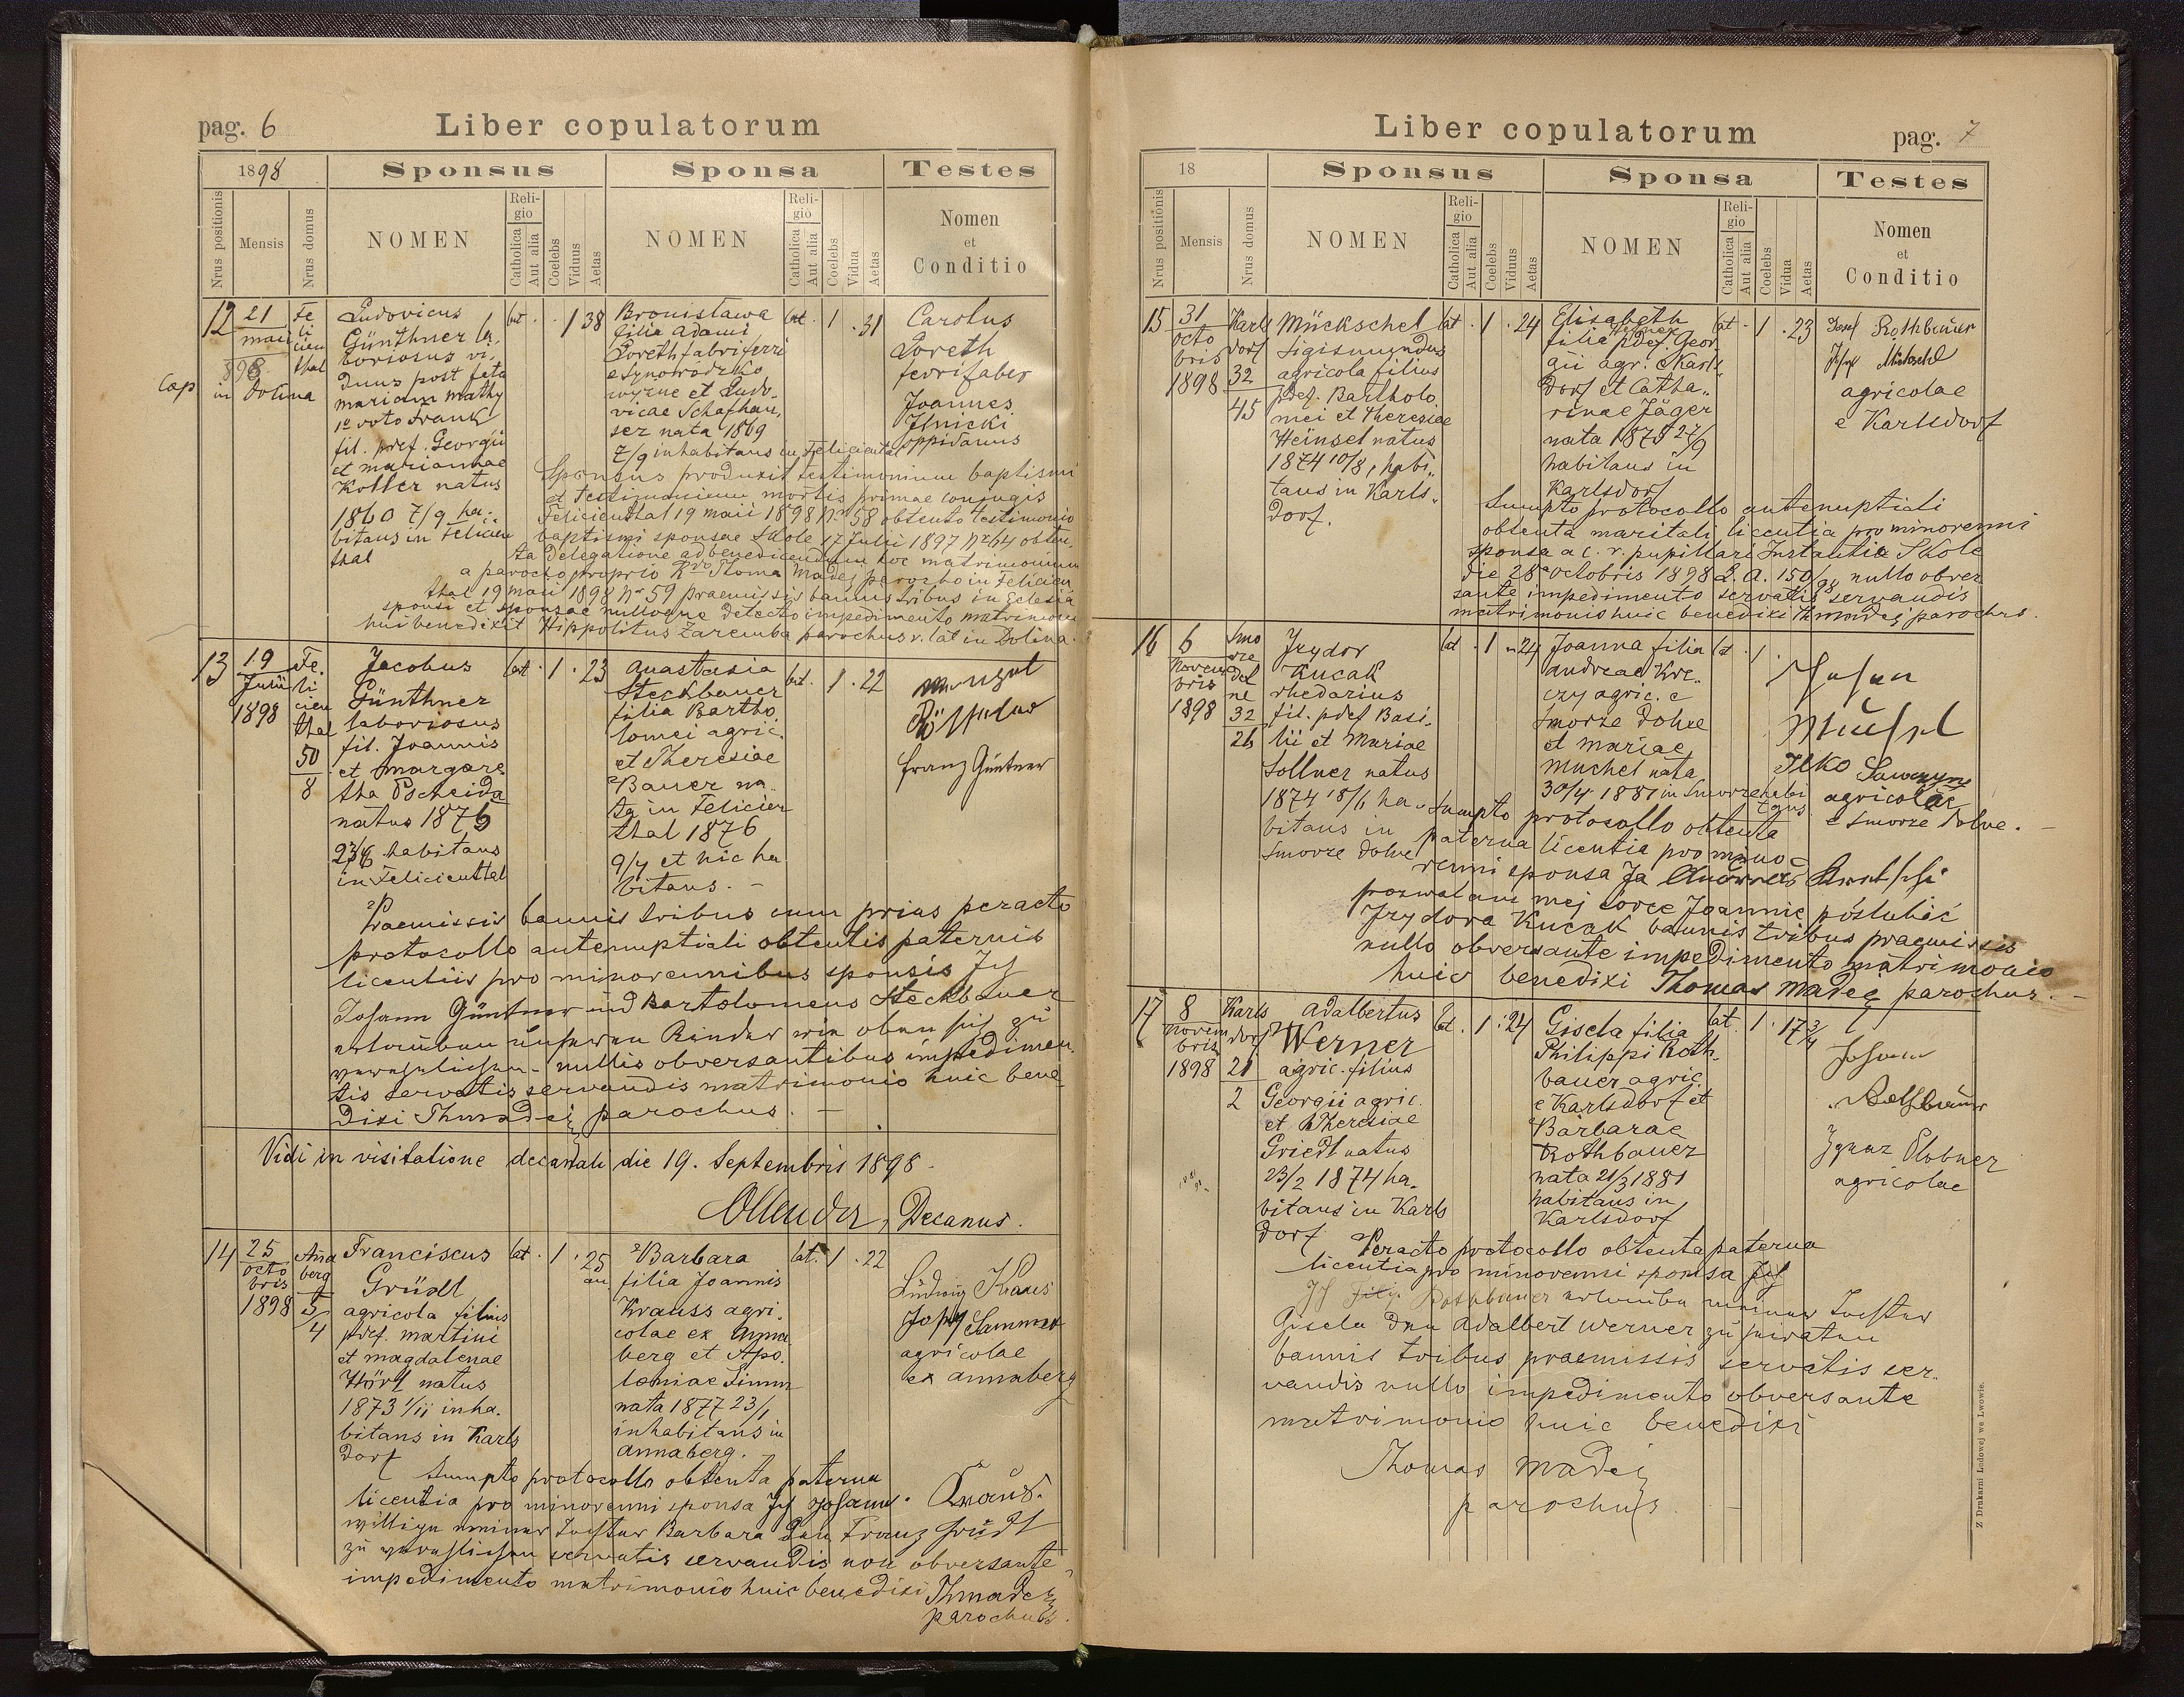 pag. 6
Liber copulatorum
1898
Sponsus
Sponsa
Testes
Nrus positionis
Mensis
Nrus domus
NOMEN
Religio
Catholica
Aut alia
Coelebs
Viduus
Aetas
NOMEN
Religio
Catholica
Aut alia
Coelebs
Vidua
Aetas
Nomen
et
Conditio
12
21
maii
898
Cop in Dolina
Fe
li
cien
thal
Ludovicus
Günthner la
boriosus vi.
duus post fata
mariam mathy
1e voto Frank
fil. pdef. Georgii
et mariannae
Koller natus
1860 7/9 ha.
bitans in Felicien
thal
lat. 1 38
Bronisława
filia Adami
Loreth fabri ferri
e Synowodzko
wyżne et Ludo.
vicae Schafhau
ser nata 1869
7/9 inhabitans in Felicienthal
lat. 1 . 31
Carolus
Loreth
ferrifaber
Joannes
Ilnicki
oppidanus
Sponsus produxit testimonium baptismi
et testimonium mortis primae conjugis
Felicienthal 19 maii 1898 Nr 58 obtento testimonio
baptismi sponsae Skole 17 Julii 1897 Nr 64 obten.
ta delegatione ad benedicendum hoc matrimonium
a parocho proprio Rdo Thoma Madej parocho in Felicien
thal 19 maii 1898 Nr 59 praemissis bannis tribus in Eclesia
sponsi et sponsae nulloque detecto impedimento matrimonio
huic benedixit Hippolitus Zaremba parochus r. lat in Dolina.
13
19
Julii
1898
Fe.
li
cien
thal
50
8
Jacobus
Günthner
laboriosus
fil. Joannis
et margare
tha Pscheida
natus 1875
23/6 habitans
in Felicienthal
lat. 1 . 23
Anastasia
Steckbauer
filia Bartho
lomei agric.
et Theresiae
Bauer na.
ta in Felicien
thal 1876
9/4 et hic ha
bitans. –
lat. 1 . 22
Franz Güntner
Praemissis bannis tribus cum prius peracto
protocollo antenuptiali obtentis paternis
licentiis pro minorennibus sponsis Ich
Johann Güntner und Bartolomeus Steckbauer
erlauben unseren Kinder wie oben sich zu
verehelichen – nullis obversantibus impedimen.
tis servatis servandis matrimonio huic bene
dixi Thmadej parochus. –
Vidi in visitatione decanali die 19. Septembris 1898.
Ollender, Decanus.
14
25
octo
bris
1898
Anna
berg
5
4
Franciscus
Gründl
agricola filius
pdef. martini
et magdalenae
Hörl natus
1873 1/11 inha.
bitans in Karls
dorf
lat. 1 . 25
an
Barbara
filia Joannis
Krauss agri.
colae ex Anna
berg et Apo.
loniae Simm
nata 1877 23/1
inhabitans in
Annaberg.
lat. 1 . 22
Ludwig Kraus
Josef Sammer
agricolae
ex annaberg
Sumpto protocollo obtenta paterna
licentia pro minorenni sponsa Ich Johann Kraus.
willige meiner Tochter Barbara den Franz Gründl
zu verehlichen servatis servandis non obversante
impedimento matrimonio huic benedixi Thmadej
parochus.
Liber copulatorum
pag. 7
18
Sponsus
Sponsa
Testes
Nrus positionis
Mensis
Nrus domus
NOMEN
Religio
Catholica
Aut alia
Coelebs
Viduus
Aetas
NOMEN
Religio
Catholica
Aut alia
Coelebs
Vidua
Aetas
Nomen
et
Conditio
15
31
octo
bris
1898
Karls
dorf
32
45
Mückschel
Sigismundus
agricola filius
pdef. Bartholo.
mei et Theresiae
Heinsel natus
1874 10/8, habi.
tans in Karls.
dorf.
lat . 1 . 24
Elisabeth
filia pdef. Geor
gii agr. e Karls.
dorf et Catha..
rinae Jäger
nata 1875 27/9
habitans in
Karlsdorf
lat . 1 . 23
Josef Rothbauer
Josef Mükschel
agricolae
e Karlsdorf
Sumpto protocollo antenuptiali
obtenta maritali licentia pro minorenni
sponsa a c. r. pupillari Instantia Skole
die 28 octobris 1898 L. A. 150/98 nullo obver
sante impedimento servatis servandis
matrimonio huic benedixi Thmadej parochus.
16
6
Novem
bris
1898
Smo
rze
dol
ne
32
26
Izydor
Kucak
rhedarius
fil. pdef Basi.
lii et Mariae
Sollner natus
1874 18/1 ha.
bitans in
Smorze dolne
lat . 1 . 24
Joanna filia
andreae Kre.
czy agric. e
Smorze dolne
et mariae
Muchel nata
30/4 1881 in Smorze habi
tans
lat . 1 .
Johan
Müchel
Ilko Sawczyn
agricolae
e Smorze dolne. –
Sumpto protocollo obtenta
paterna licentia pro mino
renni sponsa Ja
pozwalam mej córce Joannie póślubić
Izydora Kucak bannis tribus praemissis
nullo obversante impedimento matrimonio
huic benedixi Thomas Madej parochus. –
17
8
Novem
bris
1898
Karls
dorf
21
2
Adalbertus
Werner
agric. filius
Georgii agric.
et Theresiae
Griedl natus
23/2 1874 ha.
bitans in Karls
dorf
lat . 1 . 24
Gisela filia
Philippi Roth.
bauer agric.
e Karlsdorf et
Barbarae
Rothbauer
nata 21/3 1881
habitans in
Karlsdorf
lat. 1 . 17 3/4
Johann
Rothbauer
Ignaz
agricolae
Peracto protocollo obtenta paterna
licentia pro minorenni sponsa Ich
Ich Rothbauer erlaube meiner Tochter
Gisela den Adalbert Werner zu heiraten
bannis tribus praemissis servatis ser.
vandis nullo impedimento obversante
matrimonio huic benedixi
Thomas Madej
parochus –
Z Drukarni Ludowej we Lwowie.